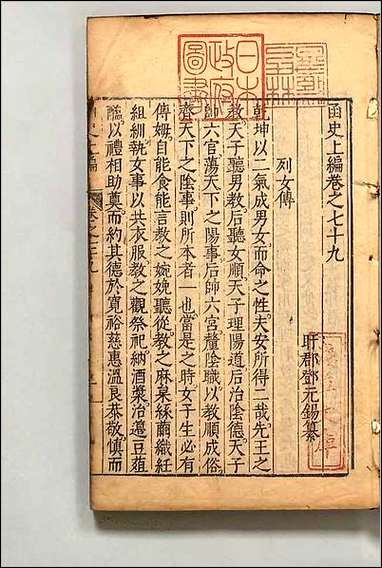 函史上編卷之七十九
盱郡鄧元錫纂
列女傳
乾坤以二氣成男女而命之性夫安所得二哉先王之
教天子聽男教后聽女順天子理陽道后治陰德天子
帥六官蕩天下之陽事后帥六宮釐陰職以教順成俗
齊天下之陰事則所本者一也當是之時女子生必有
傅姆自能食能言教之婉娩聽從教之麻枲絲繭織紝
組紃執女事以共衣服教之觀祭祀納酒漿治邊豆葅
醢以禮相助奠而約其德於寬裕慈惠溫良恭敬慎而
日本
政府
圖書